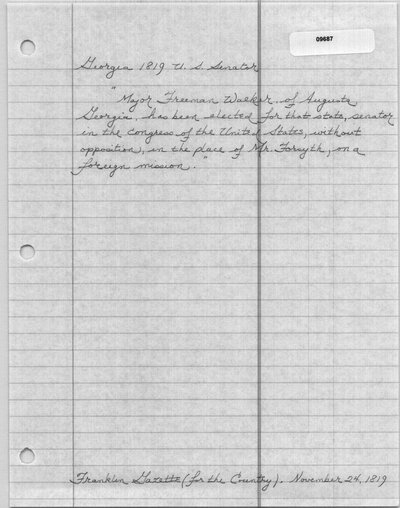 09687
Georgia 1819 U. S. Senator
"Major Freeman Walker, of Augusta
Georgia, has been elected for that state, senator
in the Congress of the United States, without
opposition, in the place of Mr. Forsyth, on a
foreign mission."
Franklin Gazette (for the Country). November 24, 1819